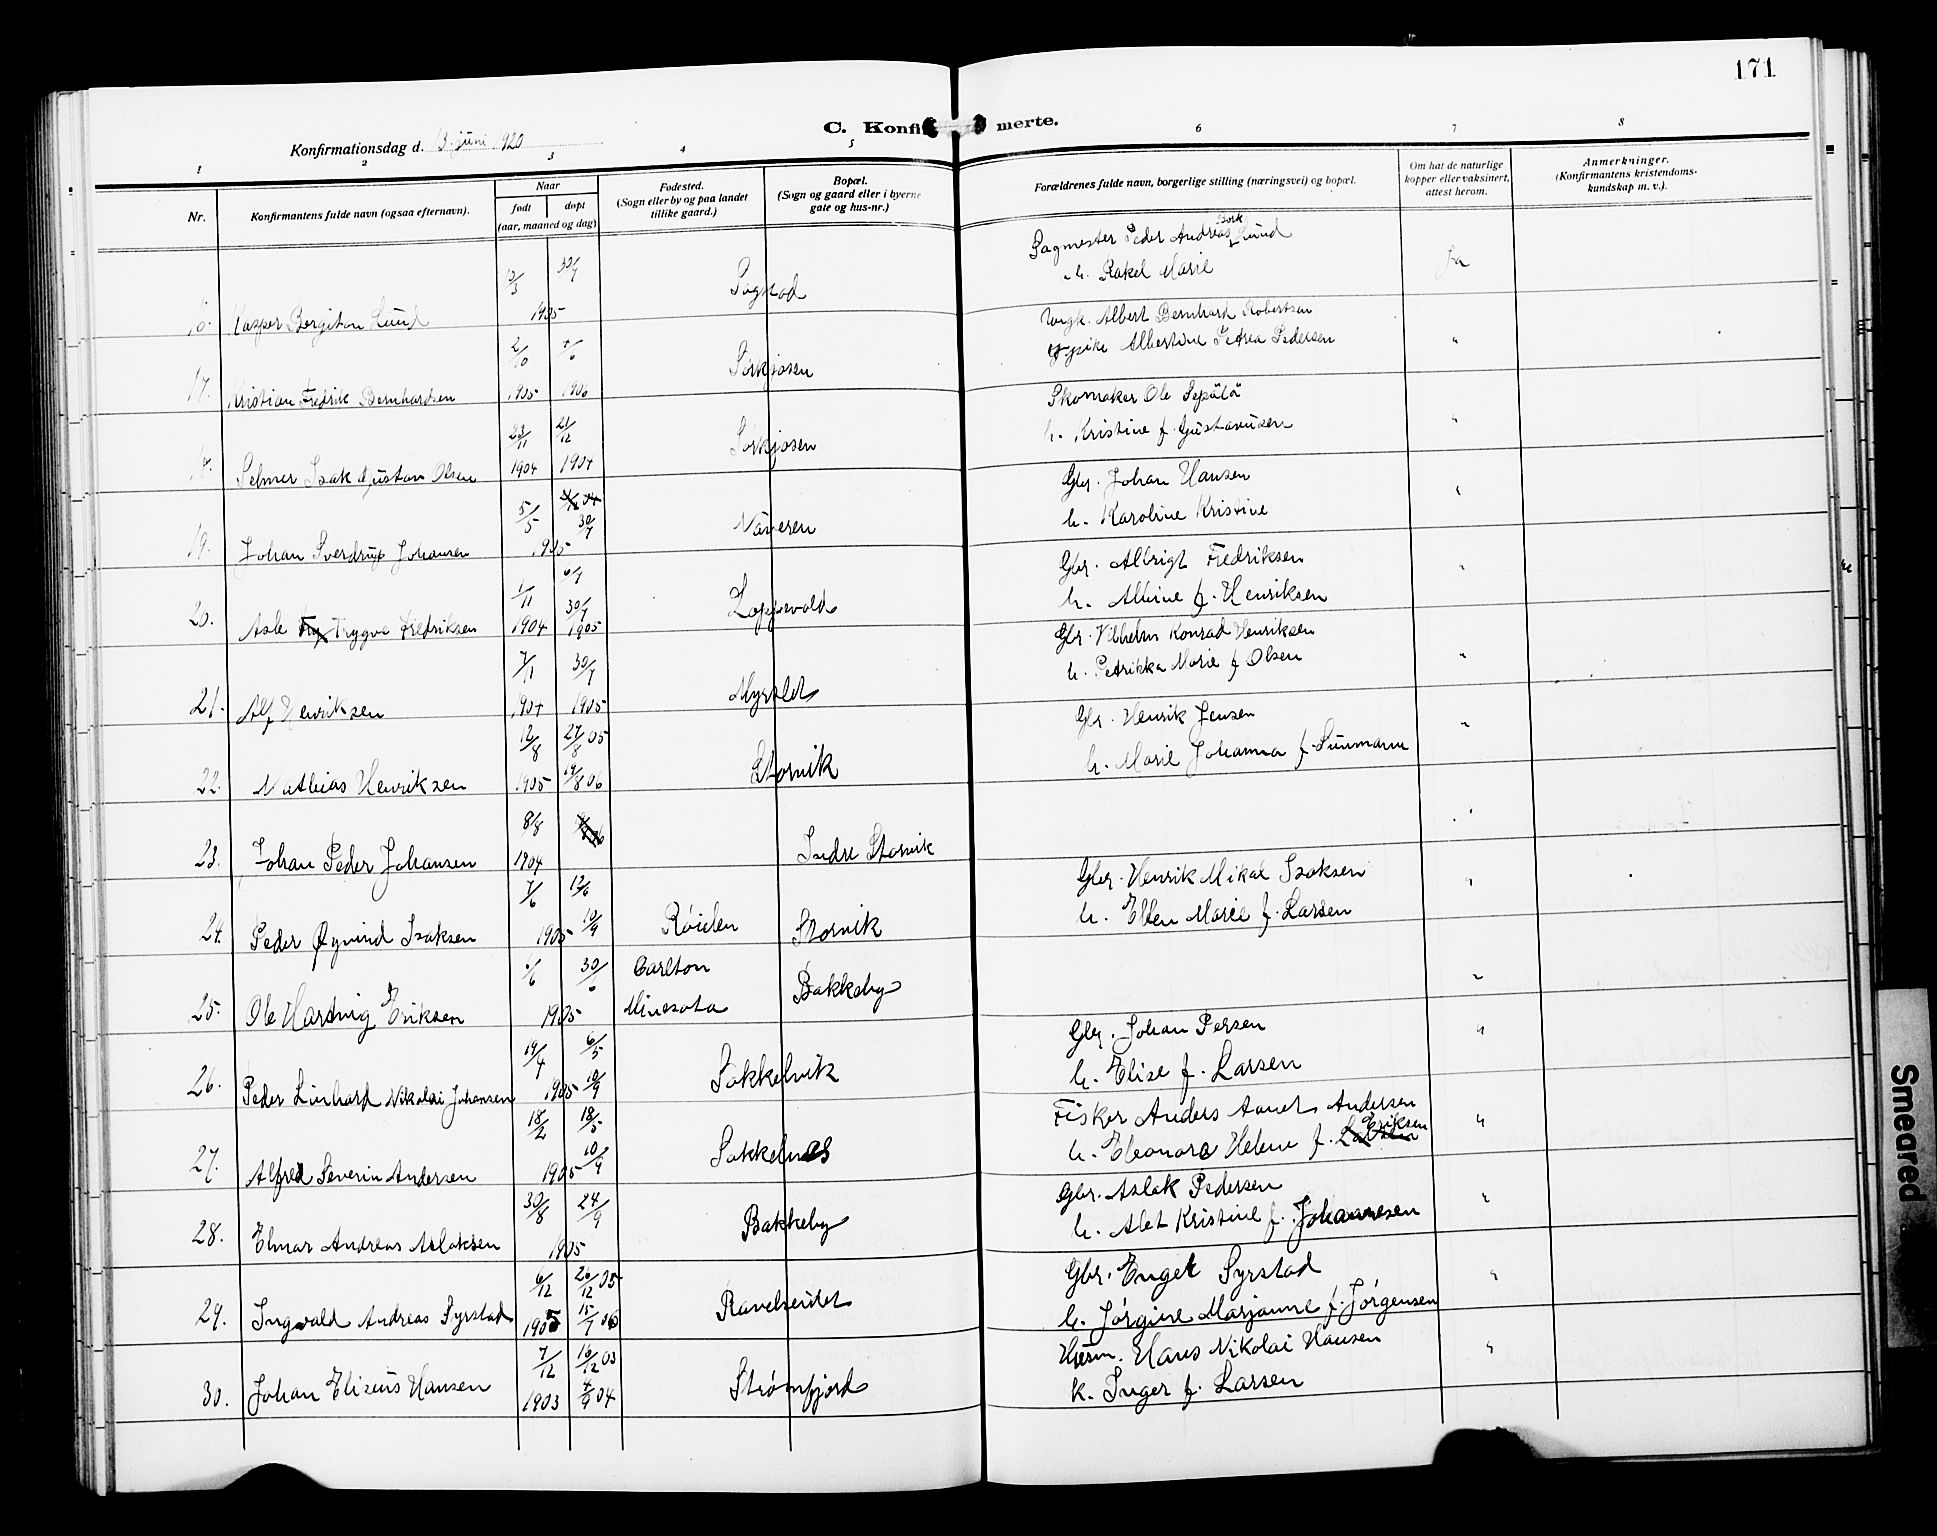 171
C. Konfi merte.
Konfirmationsdag d. 13. juni 1920
1 2 3 4 5 6 7 8
Nr.
Konfirmantens fulde navn (ogsaa efternavn).
Naar
født
døpt
(aar, maaned og dag)
Fødested.
(Sogn eller by og paa landet
tillike gaard.)
Bopæl.
(Sogn og gaard eller i byerne
gate og hus-nr.)
Forældrenes fulde navn, borgerlige stilling (næringsvei) og bopæl.
Om hat de naturlige
kopper eller vaksinert,
attest herom.
Anmerkninger.
(Konfirmantens kristendoms-
kundskap m. v.).
Sagmester Peder Andreas Bork Lund
h. Rakel Marie
Ja
16. Kasper Bergiton Lund 1905 30/7 Sagstad
Ungk. Albert Bernhard Robertsen
pike Albertine Petrea Pedersen
"
17. Kristian Fredrik Bernhardsen 1905 1906 Sørkjosen
Skomaker Ole Sepälä
h. Kristine f. Gustavusen
"
18. Selmer Isak Gustav Olsen 23/11 1904 21/12 1904 Sørkjosen
Gbr. Johan Hansen
h. Karoline Kristine
"
19. Johan Sverdrup Johansen 5/5 1905 30/7 Näveren
Gbr. Albrigt Fredriksen
h. Albine f. Henriksen
"
20. Asle Trygve Fredriksen 1/11 1904 6/1 30/7 1905 Loppevold
Gbr. Vilhelm Konrad Henriksen
h. Petrikka Marie f Olsen
"
21. Alf Henriksen 7/11 1904 30/7 1905 Myrslet
Gbr. Henrik Jensen
h. Marie Johanna f. Suumann
"
22. Mathias Henriksen 12/8 1905 27/8 05 19/8 06 Storvik
"
23. Johan Peder Johansen 8/8 1904 Indre Storvik
Gbr. Henrik Mikal Isaksen
h. Ellen Marie f. Larsen
"
24. Peder Øyvind Isaksen 7/6 1905 12/6 10/9 Röielen Storvik
"
25. Ole Hartvig Eriksen 1/6 1905 30/6 Carlton Minesota Bakkeby
Gbr. Johan Persen
h. Elise f. Larsen
"
26. Peder Linhard Nikolai Johansen 19/4 1905 6/5 10/9 Sokkelvik
Fisker Anders Aanet Andersen
h. Eleonora Helene f. Larsen Eriksen
"
27. Alfred Severin Andersen 18/2 1905 18/5 10/9 Sokkelnes
Gbr. Aslak Pedersen
h. Alet Kristine f. Johannesen
"
28. Elmar Andreas Aslaksen 30/8 1905 24/9 Bakkeby
Gbr. Engel Syrstad
h. Jørgine Marjanne f. Jørgensen
"
29. Ingvald Andreas Syrstad 6/12 1905 26/12 05 15/7 06 Ravelseidet
Husm. Hans Nikolai Hansen
k. Inger f. Larsen
"
30. Johan Elizeus Hansen 7/12 1903 16/12 03 4/9 04 Strømfjord
Smeared